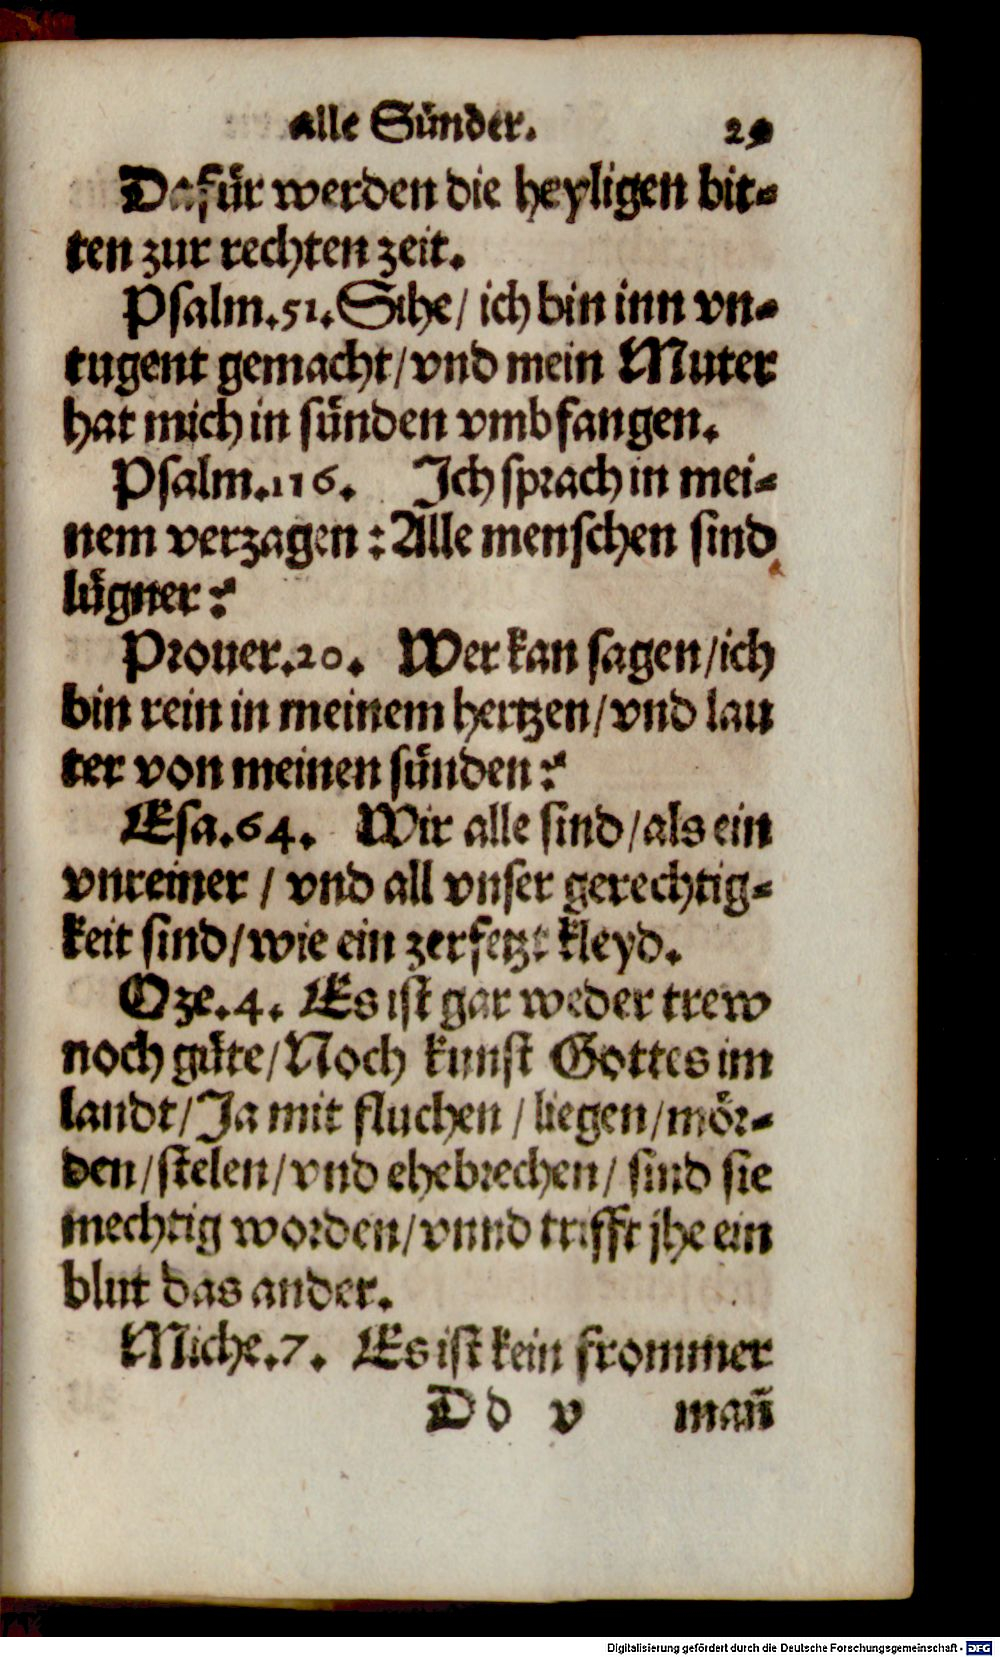 alle Sünder. 29
Dafür werden die heyligen bit⸗
ten zur rechten zeit.
Psalm.51. Sihe/ ich bin inn vn⸗
tugent gemacht/vnd mein Muter
hat mich in sünden vmbfangen.
Psalm.116. Ich sprach in mei⸗
nem verzagen: Alle menschen sind
lügner?
Prouer.20. Wer kan sagen/ich
bin rein in meinem hertzen/vnd lau
ter von meinen sünden?
Esa.64. Wir alle sind/als ein
vnreiner / vnd all vnser gerechtig⸗
keit sind/wie ein zerfetzt kleyd.
Oze.4. Es ist gar weder trew
noch güte/Noch kunst Gottes im
landt/Ja mit fluchen / liegen/mör⸗
den/stelen/vnd ehebrechen/ sind sie
mechtig worden/vnnd trifft jhe ein
blut das ander.
Miche.7. Es ist kein frommer
Dd v mañ
Digitalisierung gefördert durch die Deutsche Forschungsgemeinschaft - DFG